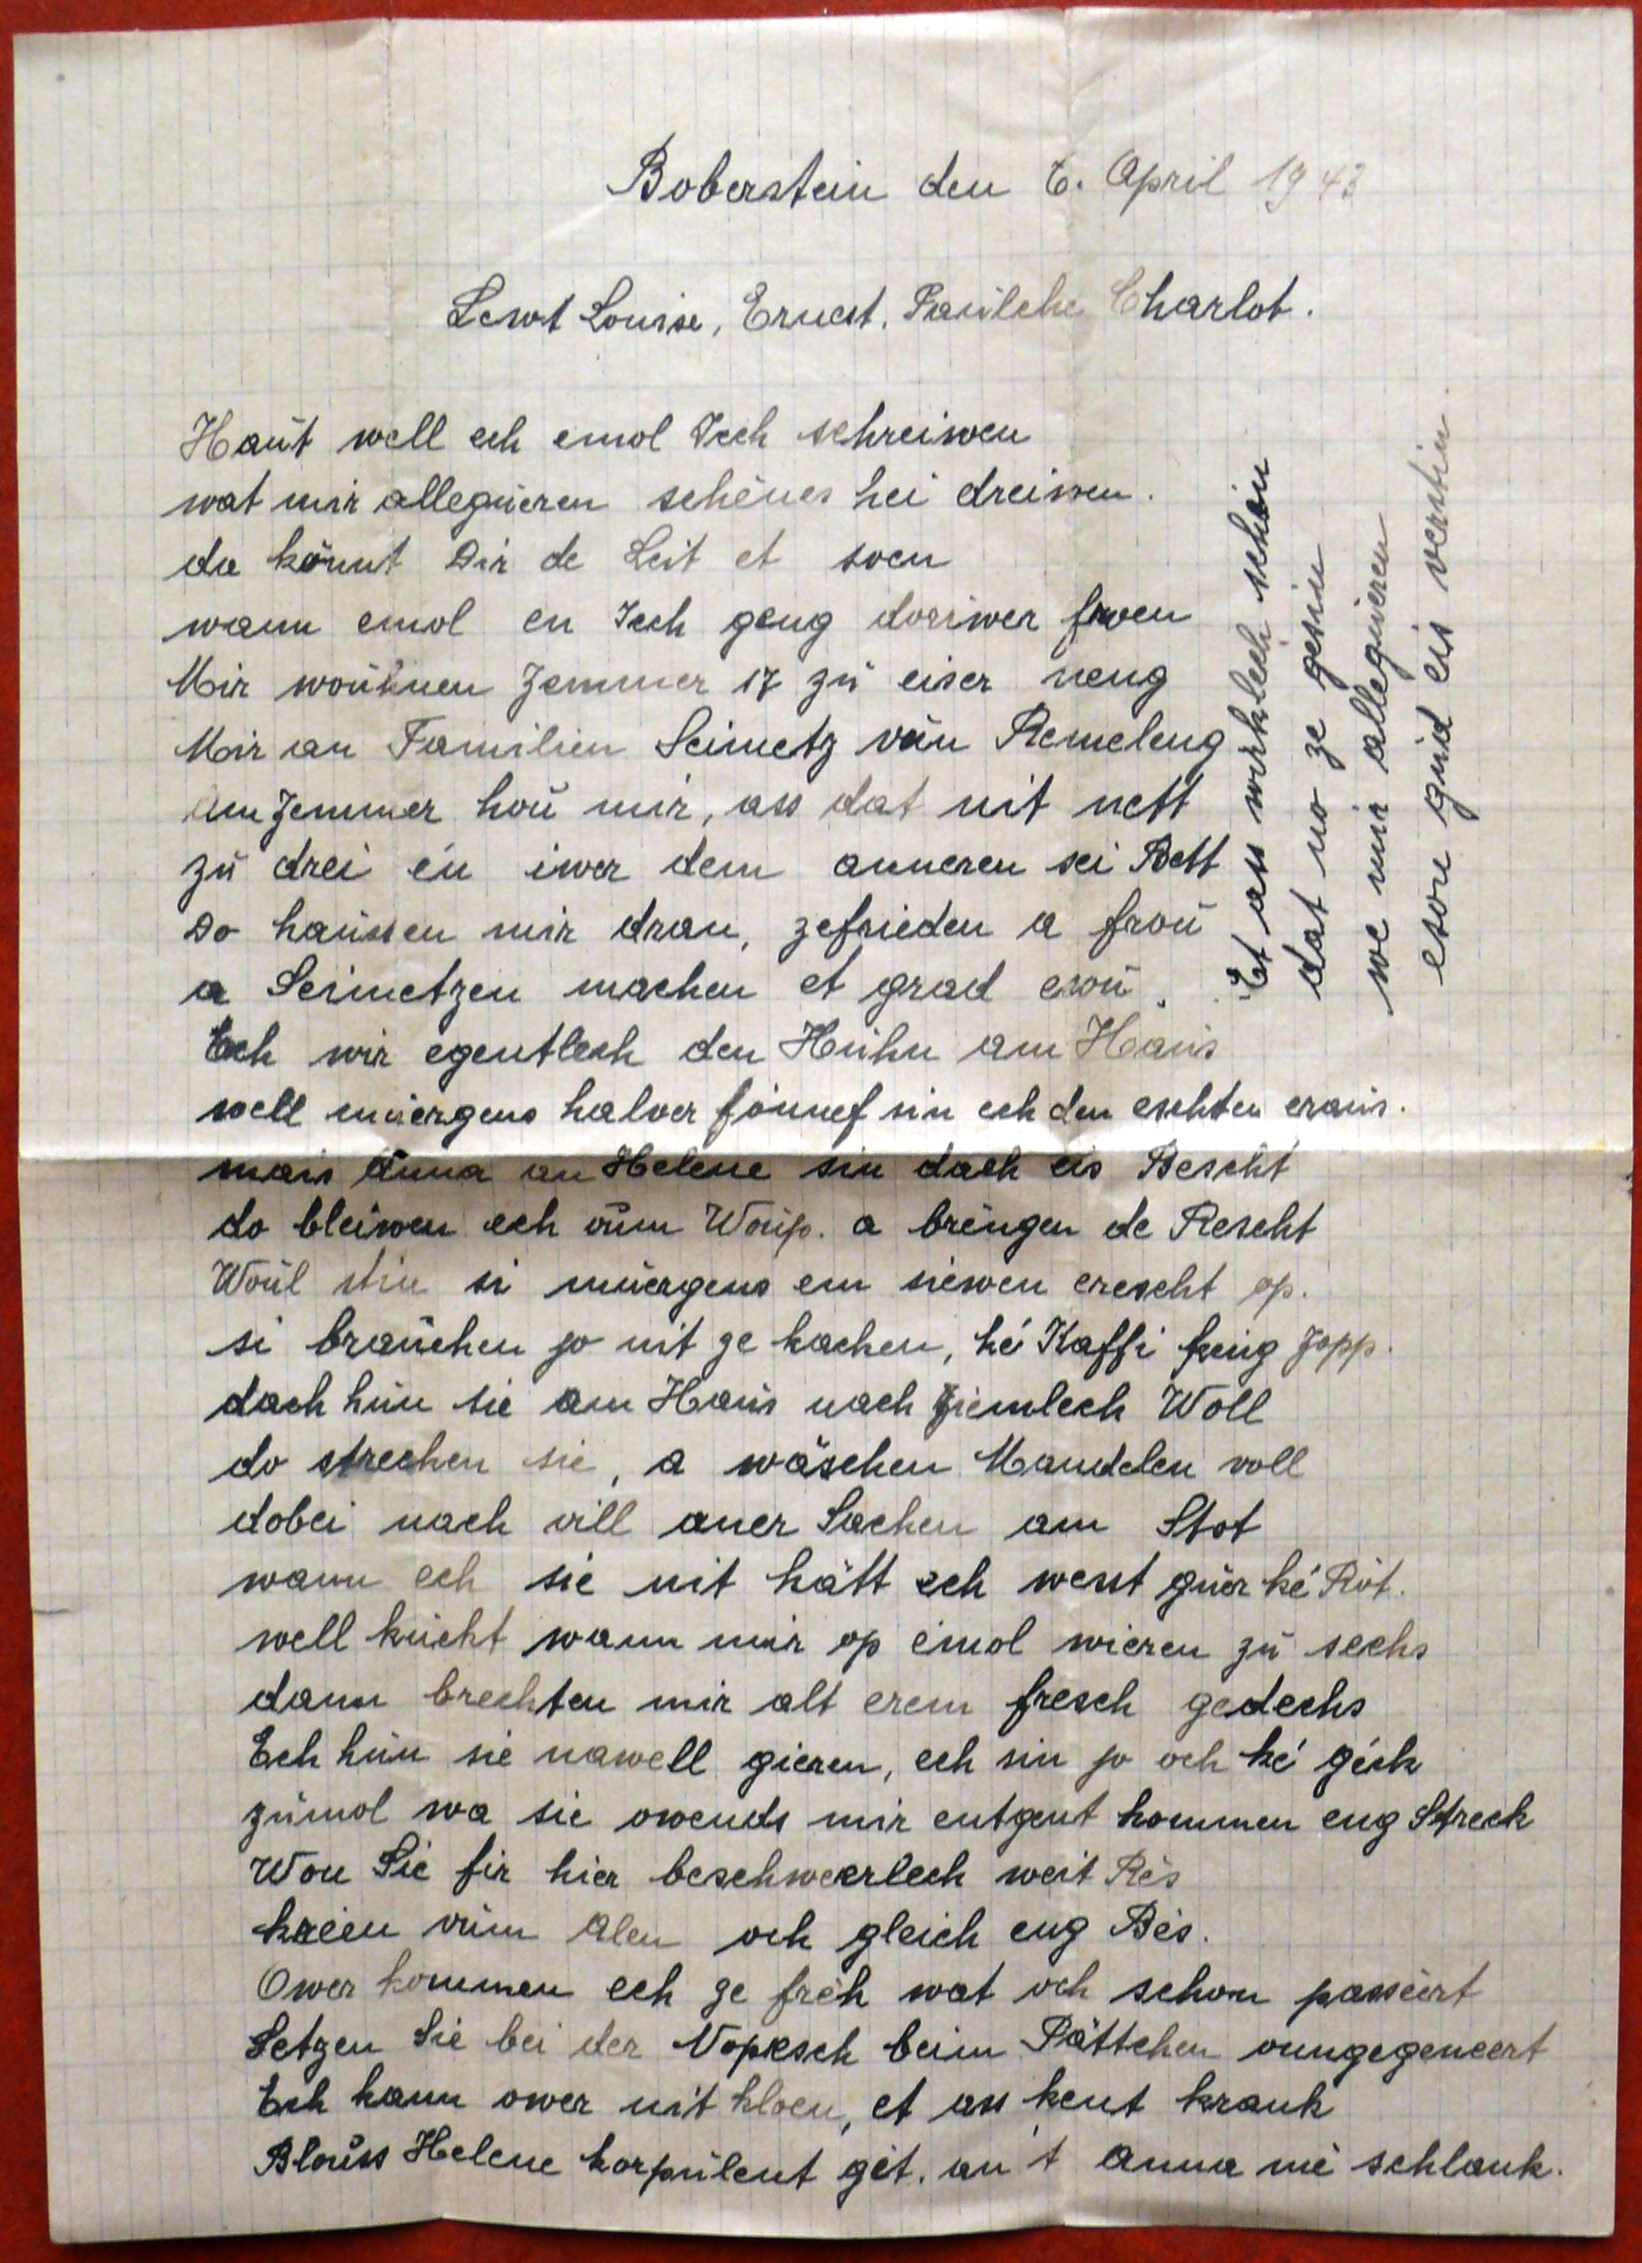 Boberstein den 6. April 1943
Lewt Louise, Ernest, Paulche Charlot.
Haut well ech emol Iech schreiwen
wat mir allegueren schénes hei dreiwen.
da könnt Dir de Leit et soen
wann emol en Iech geng doriwer froen
Mir wouhnen Zemmer 17 zu eiser neng
Mir an Familien Seimetz vun Remeleng
am Zemmer hou mir, ass dat nit nett
zu drei én iwer dem anneren sei Bett
Do haussen mir dran, zefrieden a frou
a Seimetzen machen et grad esou.
Ech wir egentlech den Huhn am Haus
well muergens halver fönnef sin ech den eschten eraus.
mais Anna an Helene sin dach eis Bescht
do bleiwen ech vum Woup. a bréngen de Rescht
Woul stin si muergens em siewen erescht op.
si brauchen jo nit ze kachen, ké Kaffi keng Zopp.
dach hun sie am Haus nach ziemlech Woll
do strechen sie, a wäschen Mandelen voll
dobei nach vill aner Sachen am Stot
wann ech sie nit hätt ech wesst guer ké Rot.
well kuckt wann mir op eimol wieren zu sechs
dann brechten mir alt erem fresch gedechs
Ech hun sie nawell gieren, ech sin jo och ké géck
zumol wa sie owends mir entgent kommen eng Streck
Wou Sie fir hier beschweerlech weit Rés
kréien vum Alen och gleich eng Bés.
Ower kommen ech ze fréh wat och schon passéert
Setzen Sie bei der Nopesch beim Pättchen onngegeneert
Ech kann ower nit kloen, et ass kent krank
Blouss Helene korpulent gét, an 't Anna mé schlank.
Et ass wirklech schéin
dat no ze gesin
we mir allegueren
esou gud eis verstin.